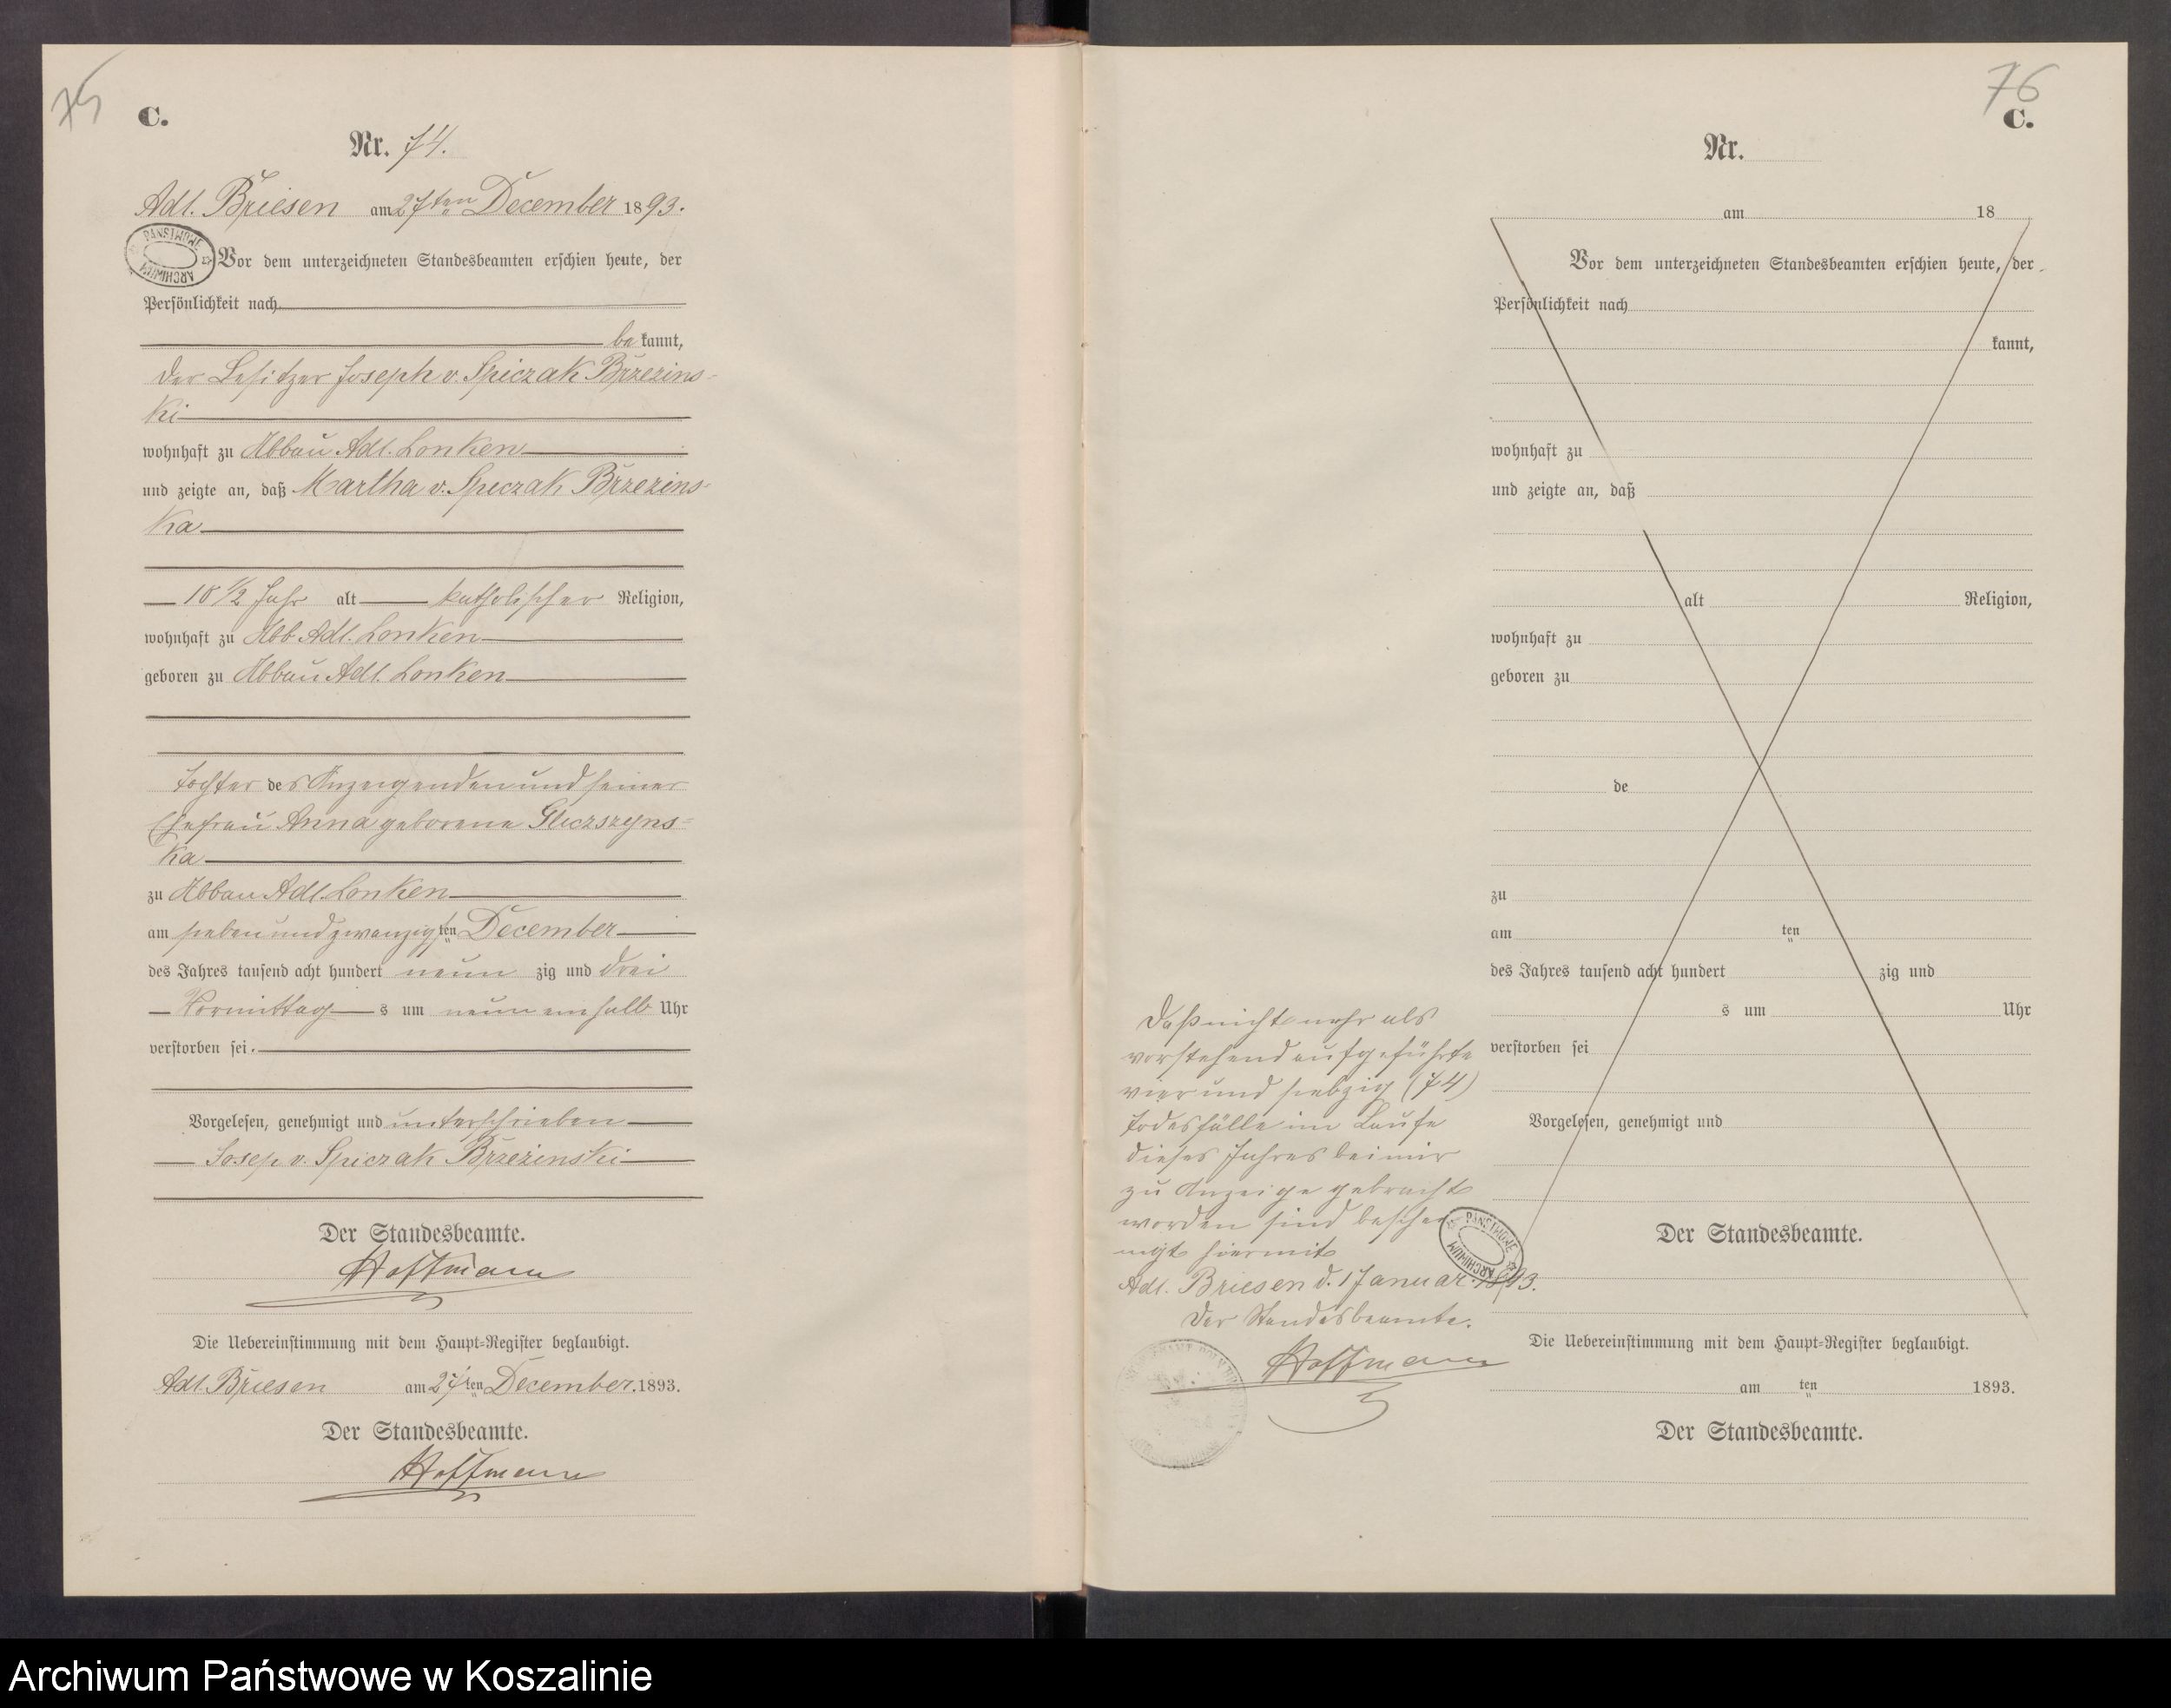 75
C.
Nr. 74.
Adl. Briesen am 27ten December 1893.
PANSTWOWE ARCHIWUM
Vor dem unterzeichneten Standesbeamten erschien heute, der
Persönlichkeit nach
bekannt,
der Besitzer Joseph v. Spiczak Brzezins-
ki
wohnhaft zu Abbau Adl. Lonken
und zeigte an, daß Martha v. Spiczak Brzezins-
ka
18 1/2 Jahr alt katholischer Religion,
wohnhaft zu Abb. Adl. Lonken
geboren zu Abbau Adl. Lonken
Tochter des Anzeigenden und seiner
Ehefrau Anna geborene Gliczszyns-
ka
zu Abbau Adl. Lonken
am sieben und zwanzigten December
des Jahres tausend acht hundert neun zig und drei
Vormittags um neun ein halb Uhr
verstorben sei.
Vorgelesen, genehmigt und unterschrieben
Josep v. Spiczak Brzezinski
Der Standesbeamte.
Hoffmann
Die Uebereinstimmung mit dem Haupt-Register beglaubigt.
Adl. Briesen am 27ten December. 1893.
Der Standesbeamte.
Hoffmann
76
C.
Nr.
am 18
Vor dem unterzeichneten Standesbeamten erschien heute, der
Persönlichkeit nach
kannt,
wohnhaft zu
und zeigte an, daß
alt Religion,
wohnhaft zu
geboren zu
de
zu
am ten
des Jahres tausend acht hundert zig und
s um Uhr
verstorben sei
Vorgelesen, genehmigt und
Der Standesbeamte.
Die Uebereinstimmung mit dem Haupt-Register beglaubigt.
am ten 1893.
Der Standesbeamte.
Daß nicht mehr als
vorstehend aufgeführte
vier und siebzig (74)
Todesfälle im Laufe
dieses Jahres bei mir
zu Anzeige gebracht
worden sind beschei
nigt hiermit
Adl. Briesen d. 1 Januar. 1893.
Der Standesbeamte.
Hoffmann
PANSTWOWE ARCHIWUM
Archiwum Państwowe w Koszalinie